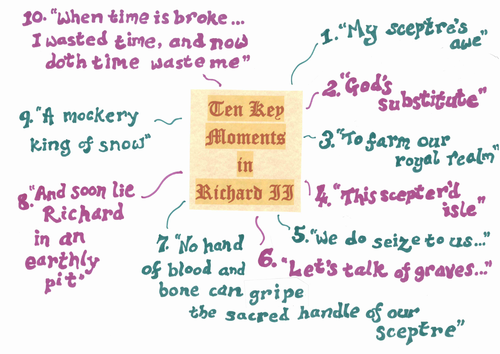 Ten Key
Moments
in
Richard II
1. "My sceptre's
awe"
2. "God's
substitute"
3. "To farm our
royal realm"
4. "This scepter'd
isle"
5. "We do seize to us..."
6. "Let's talk of graves..."
7. "No hand
of blood and
bone can gripe
the sacred handle of our
sceptre"
8. "And soon lie
Richard
in an
earthly
pit"
9. "A mockery
king of snow"
10. "When time is broke...
I wasted time, and now
doth time waste me"